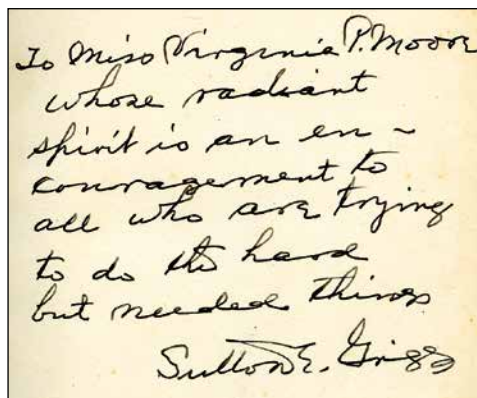 To Miss Virginia P. Moore
whose radiant
spirit is an en-
couragement to
all who are trying
to do the hard
but needed things
Sutton E. Griggs